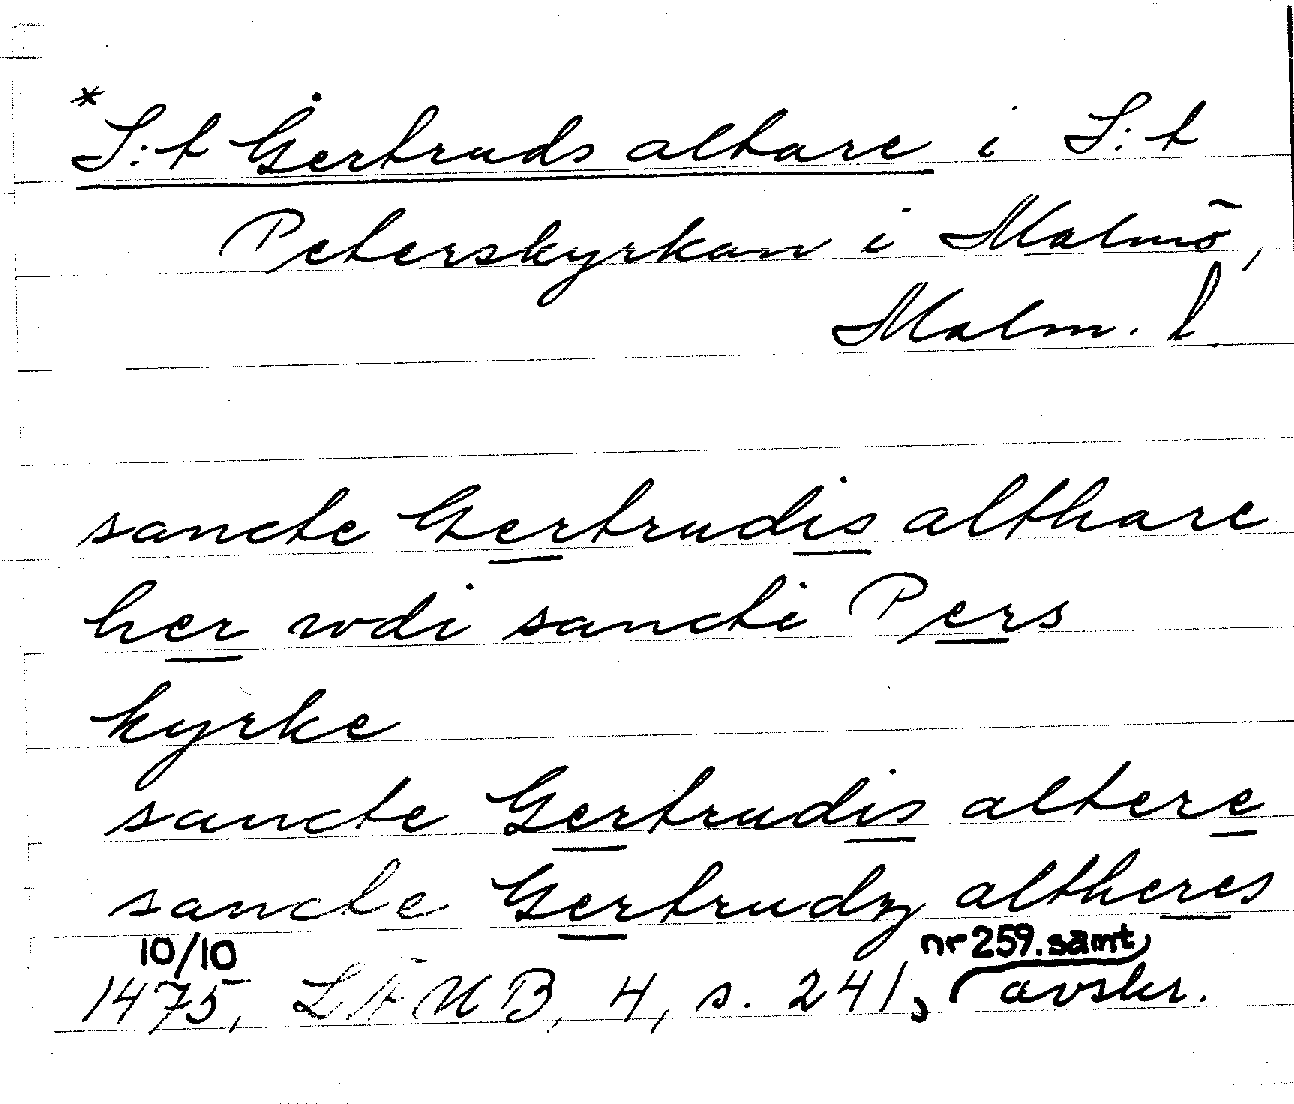 *S:t Gertruds altare i S:t
Peterskyrkan i Malmö,
Malm. l
sancte Gertrudis althare
her wdi sancti Pers
kyrke
sancte Gertrudis altere
sancte Gertrudz altheres
10/10 nr 259. samt
1475, LÄUB, 4, s. 241, avskr.